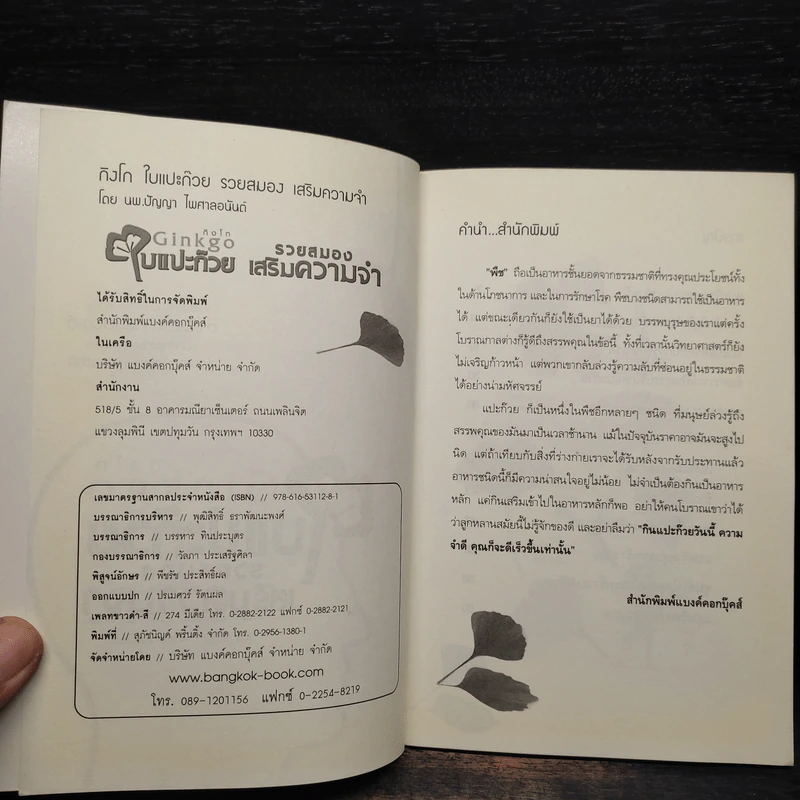 กิงโก ใบแปะก๊วย รวยสมอง เสริมความจำ
โดย นพ.ปัญญา ไพศาลอนันต์
กิงโก
Ginkgo
ใบแปะก๊วย
รวยสมอง
เสริมความจำ
ได้รับสิทธิ์ในการจัดพิมพ์
สำนักพิมพ์แบงค์คอกบุ๊คส์
ในเครือ
บริษัท แบงค์คอกบุ๊คส์ จำหน่าย จำกัด
สำนักงาน
518/5 ชั้น 8 อาคารมณียาเซ็นเตอร์ ถนนเพลินจิต
แขวงลุมพินี เขตปทุมวัน กรุงเทพฯ 10330
เลขมาตรฐานสากลประจำหนังสือ (ISBN) // 978-616-53112-8-1
บรรณาธิการบริหาร // พุฒิสิทธิ์ ธราพัฒนะพงศ์
บรรณาธิการ // บรรหาร ทินประบุตร
กองบรรณาธิการ // วัลภา ประเสริฐศิลา
พิสูจน์อักษร // พีชรัช ประสิทธิ์ผล
ออกแบบปก // ปรเมศวร์ รัตนผล
เพลทขาวดำ-สี // 274 มีเดีย โทร. 0-2882-2122 แฟกซ์ 0-2882-2121
พิมพ์ที่ // สุภัชนิญค์ พริ้นติ้ง จำกัด โทร. 0-2956-1380-1
จัดจำหน่ายโดย // บริษัท แบงค์คอกบุ๊คส์ จำหน่าย จำกัด
www.bangkok-book.com
โทร. 089-1201156 แฟกซ์ 0-2254-8219
คำนำ...สำนักพิมพ์
"พืช" ถือเป็นอาหารชั้นยอดจากธรรมชาติที่ทรงคุณประโยชน์ทั้ง
ในด้านโภชนาการ และในการรักษาโรค พืชบางชนิดสามารถใช้เป็นอาหาร
ได้ แต่ขณะเดียวกันก็ยังใช้เป็นยาได้ด้วย บรรพบุรุษของเราแต่ครั้ง
โบราณกาลต่างก็รู้ดีถึงสรรพคุณในข้อนี้ ทั้งที่เวลานั้นวิทยาศาสตร์ก็ยัง
ไม่เจริญก้าวหน้า แต่พวกเขากลับล่วงรู้ความลับที่ซ่อนอยู่ในธรรมชาติ
ได้อย่างน่ามหัศจรรย์
แปะก๊วย ก็เป็นหนึ่งในพืชอีกหลายๆ ชนิด ที่มนุษย์ล่วงรู้ถึง
สรรพคุณของมันมาเป็นเวลาช้านาน แม้ในปัจจุบันราคาอาจมันจะสูงไป
นิด แต่ถ้าเทียบกับสิ่งที่ร่างกายเราจะได้รับหลังจากรับประทานแล้ว
อาหารชนิดนี้ก็มีความน่าสนใจอยู่ไม่น้อย ไม่จำเป็นต้องกินเป็นอาหาร
หลัก แค่กินเสริมเข้าไปในอาหารหลักก็พอ อย่าให้คนโบราณเขาว่าได้
ว่าลูกหลานสมัยนี้ไม่รู้จักของดี และอย่าลืมว่า "กินแปะก๊วยวันนี้ ความ
จำดี คุณก็จะดีเร็วขึ้นเท่านั้น"
สำนักพิมพ์แบงค์คอกบุ๊คส์